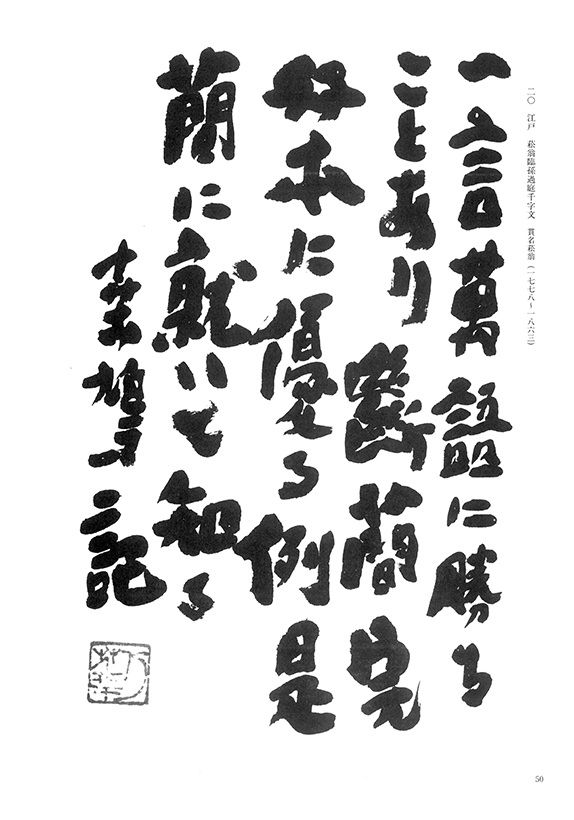 二〇 江戸 菘翁臨孫過庭千字文 貫名菘翁(一七七八〜一八六三)
一言萬語に勝る
ことあり 斷簡完
好本に優る例是
簡に就いて知る
桒鳩記
50